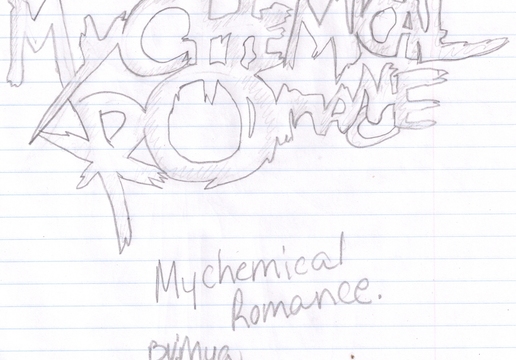 MyCHEMiCAL
ROmANCE
Mychemical
Romance.
By:Mya.